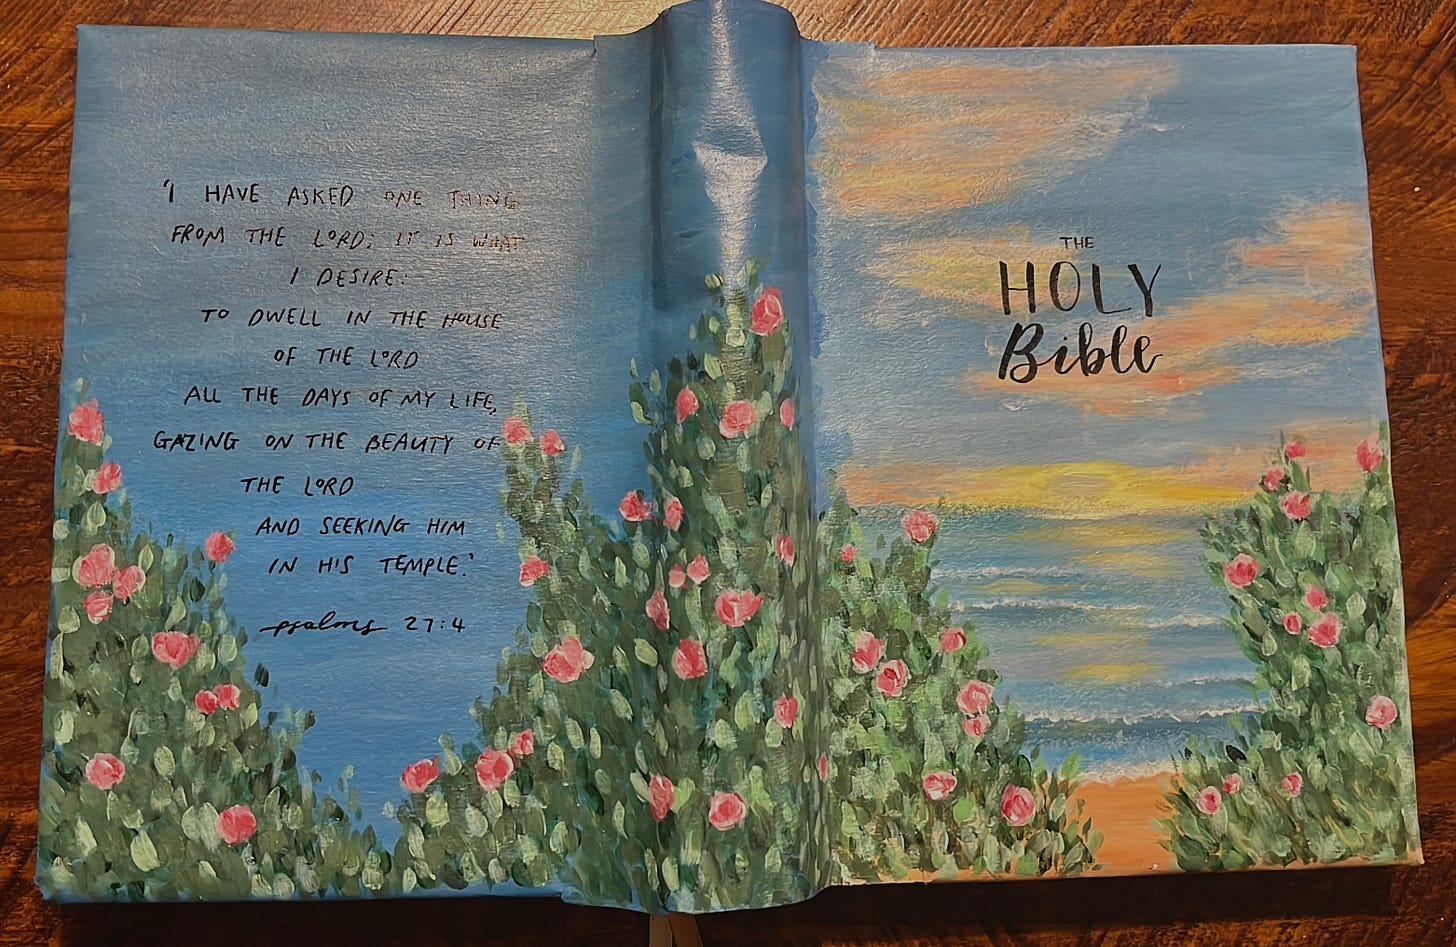 'I HAVE ASKED ONE THING
FROM THE LORD; IT IS WHAT
I DESIRE:
TO DWELL IN THE HOUSE
OF THE LORD
ALL THE DAYS OF MY LIFE,
GAZING ON THE BEAUTY OF
THE LORD
AND SEEKING HIM
IN HIS TEMPLE.'
psalms 27:4
THE
HOLY
Bible